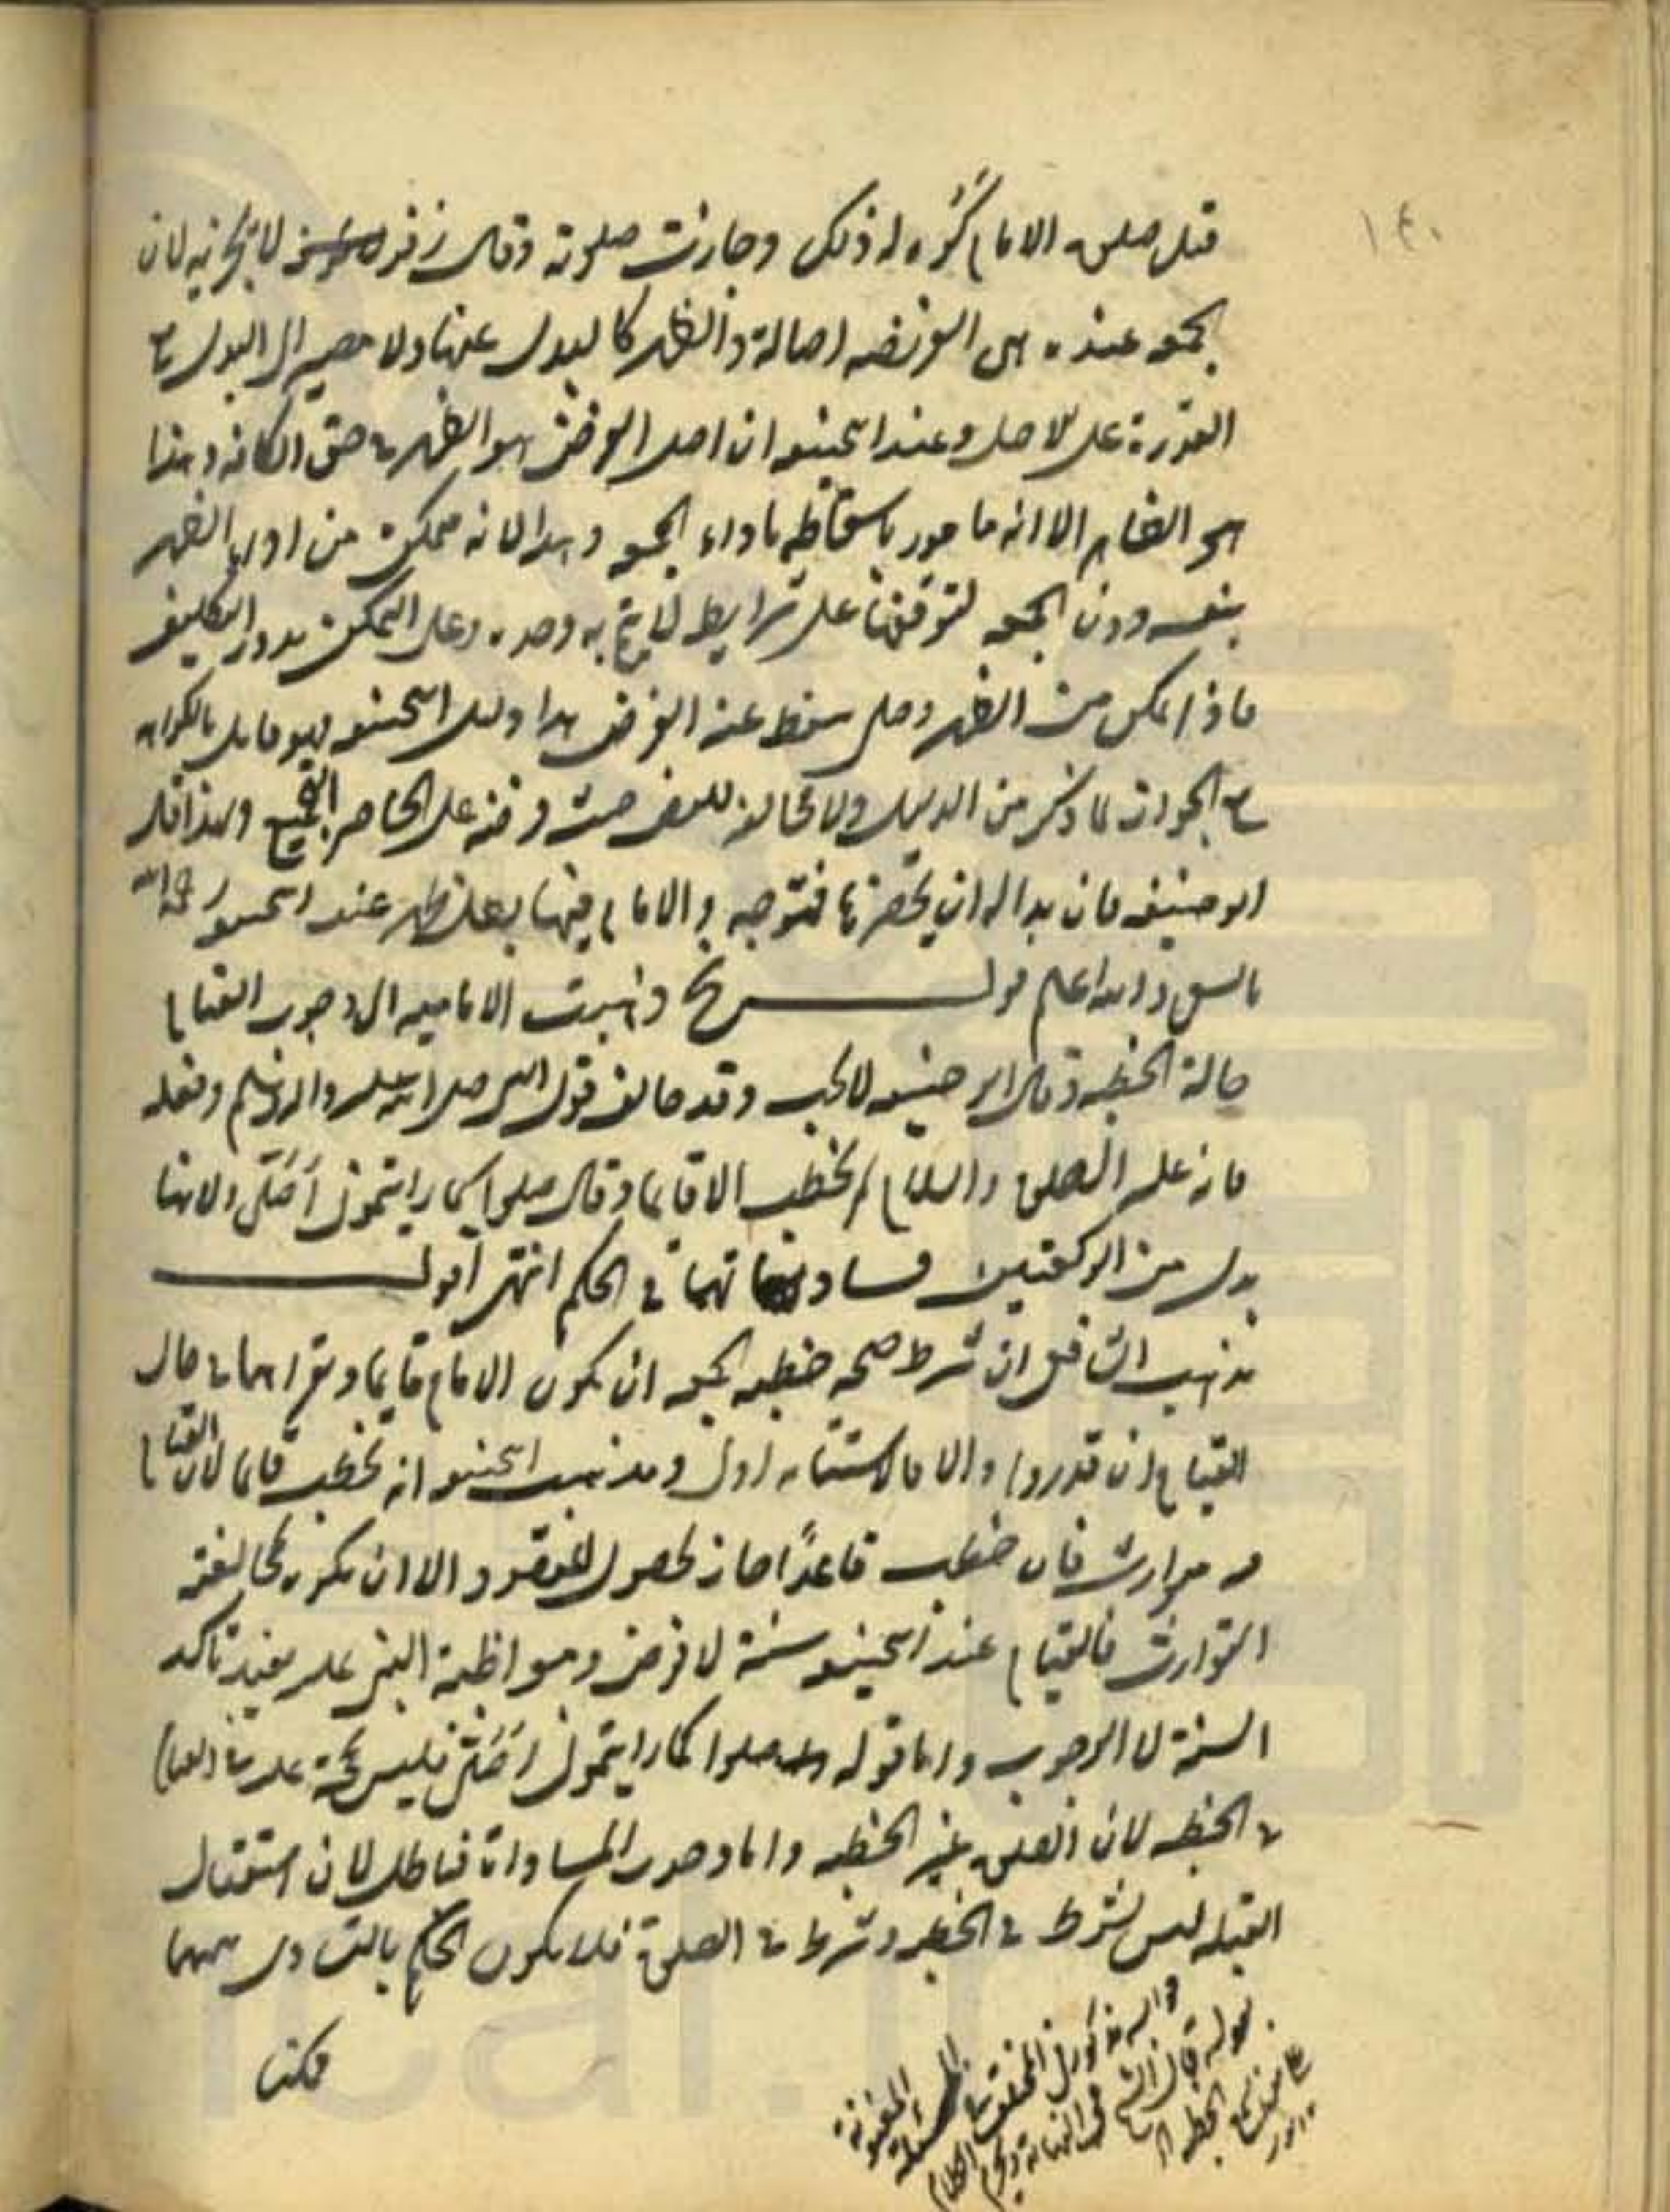 ١٤٠
قبل صلوة الامام كُره له ذلك وجازت صلوته وقال زفر لا يجزئه لان
الجمعه عنده هى الفريضه اصالة والظهر كالبدل عنها ولا مصير الى البدل مع
القدرة على الاصل وعند ابيحنيفه ان اصل الفرض هو الظهر فى حق الكافه وهذا
هو الظاهر الا انه مامور باسقاطه باداء الجمعه وهذا لانه متمكن من اداء الظهر
بنفسه دون الجمعه لتوقفها على شرايط لا يتم به وحده وعلى التمكن يدور التكليف
فاذا تمكن من الظهر وصلى سقط عنه الفرض هذا دليل ابيحنيفه فهو قايل بالكراهه
مع الجواز لما ذكر من الدليل ولا مخالفه للنص حيث فرضه على الحاضر الجمع ولهذا قال
ابو حنيفه فان بدا له ان يحضرها فتوجه والامام فيها بطل ظهره عند ابيحنيفه رحمه الله
بالسعى والله اعلم قولـــه نح وذهبت الاماميه الى وجوب القيام
حالة الخطبه وقال ابو حنيفه لا يجب وقد خالف قول النبى صلى الله عليه واله وسلم وفعله
فانه عليه الصلوة والسلام لم يخطب الا قايما وقال صلوا كما رايتمونى اُصَلّى ولانها
بدل من الركعتين فساوتهما فى الحكم انتهى اقولـــ
مذهب الشافعى ان شرط صحه خطبه الجمعه ان يكون الامام قايما ويقراهما فى حال
القيام ان قدروا والا فالاستنابه اولى ومذهب ابيحنيفه انه يخطب قايما لان القيام
فيه متوارث فان خطب قاعدًا جاز لحصول المقصود الا انه يكره لمخالفته
التوارث فالقيام عند ابيحنيفه سنة لا فرض ومواظبة النبى عليه يفيد تاكد
السنة لا الوجوب واما قوله صلوا كما رايتمونى اُصَلّى فليس بحجة على القيام
فى الخطبه لان الصلوة غير الخطبه واما وجوب المساواة فباطل لان استقبال
القبله ليس بشرط فى الخطبه وشرط فى الصلوة فلا يكون الحكم بالتساوى بينهما
ممكنا